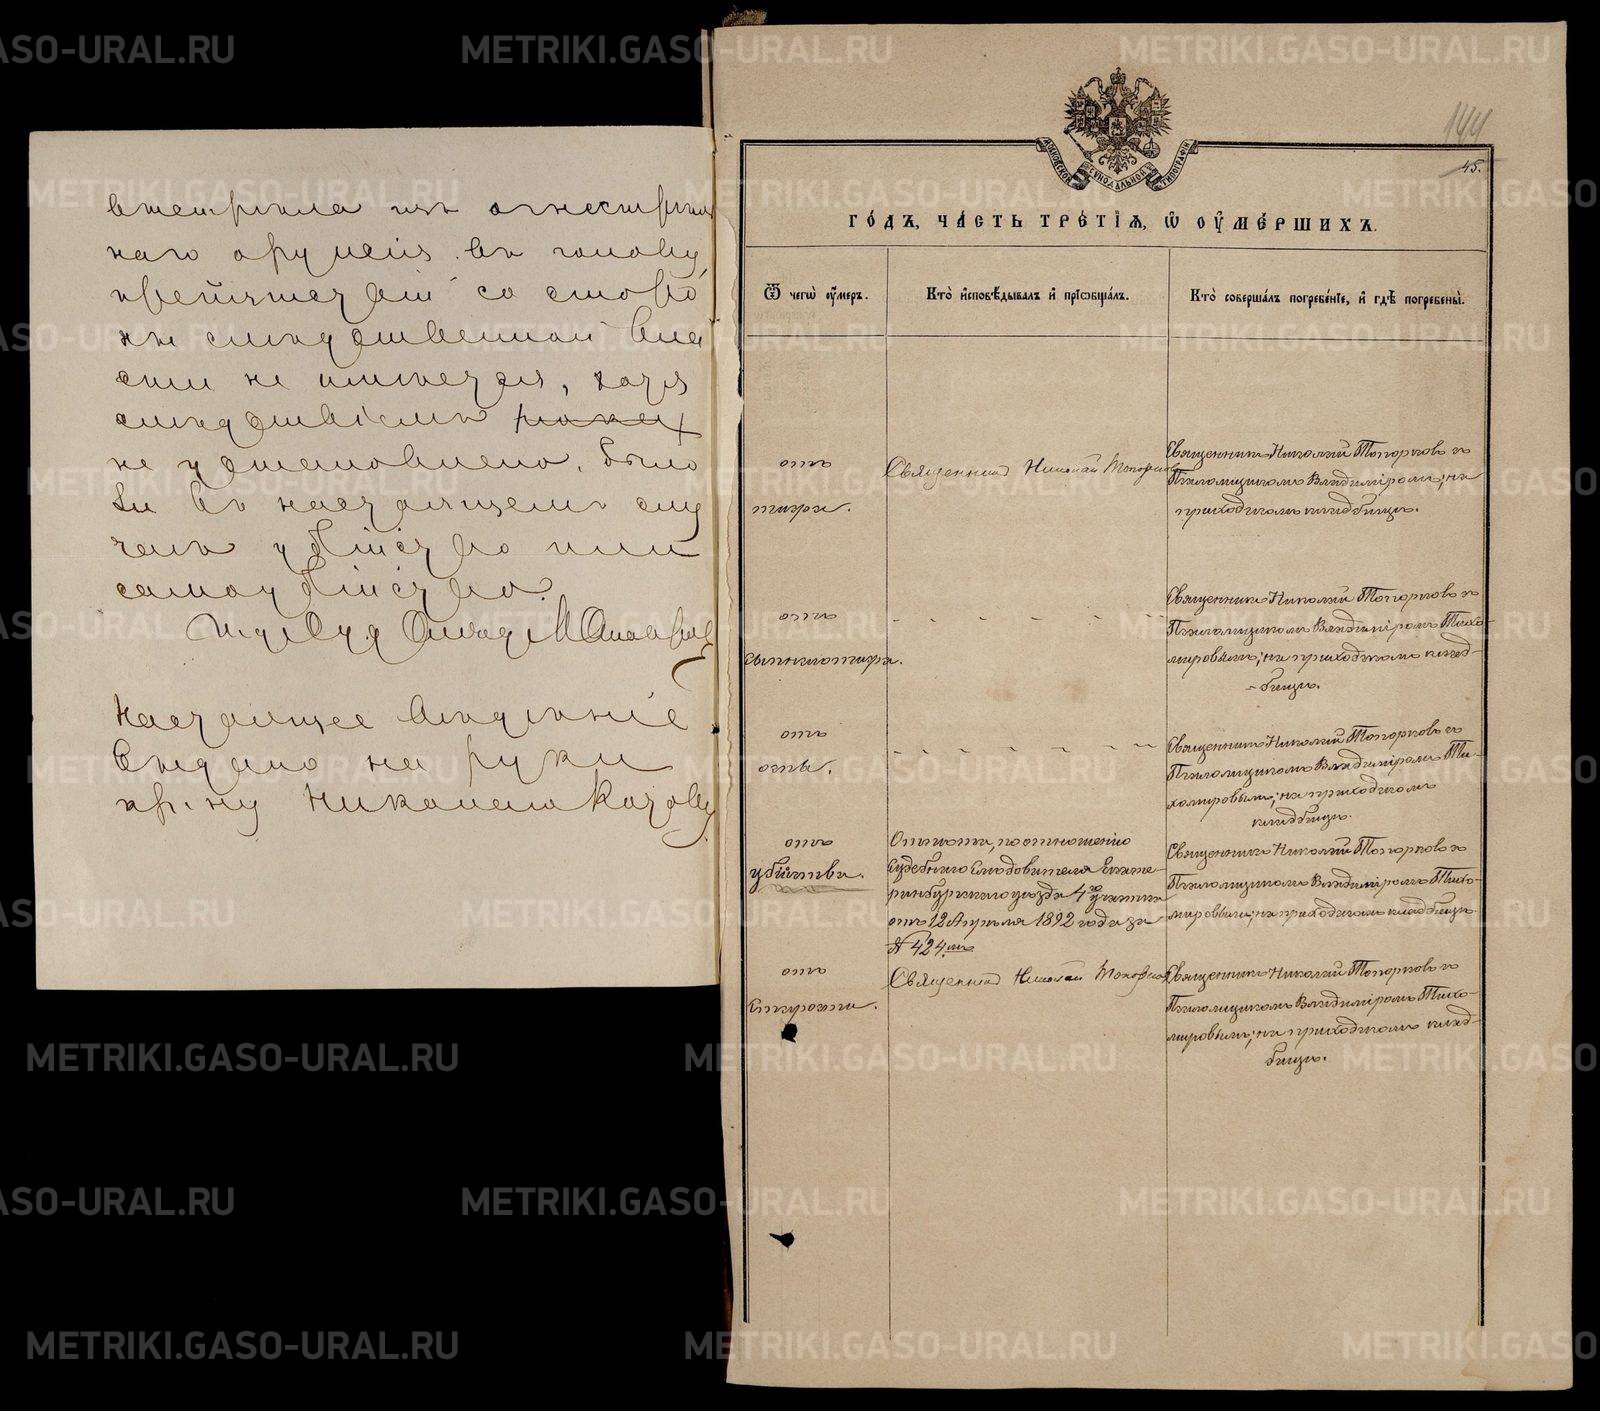 выстрѣла изъ огнестрѣль
наго оружія въ голову,
препятствій со сторо
ны слѣдственной вла
сти не имѣется, хотя
слѣдствіемъ пока
не установлено, было
ли въ настоящемъ слу
чаѣ убійство или
самоубійство.
Суд Слѣд
Настоящее свѣдѣніе
выдано на руки
кр-ну Николаю Казову
144
45.
МОСКОВСКОЙ СѴНОДАЛЬНОЙ ТИПОГРАФІИ
ГОДЪ, ЧАСТЬ ТРЕТІЯ, Ѿ ОУМЕРШИХЪ.
Ѿ чегѡ оумеръ.
Кто исповѣдывалъ и пріѡбщалъ.
Кто совершалъ погребеніе, и гдѣ погребены.
отъ
кори.
Священникъ Николай Топорковъ
Священникъ Николай Топорковъ съ
Псаломщикомъ Владиміромъ; на
приходскомъ кладбищѣ.
отъ

Священникъ Николай Топорковъ съ
Псаломщикомъ Владиміромъ Тихо-
мировымъ; на приходскомъ клад-
-бищѣ.
отъ
оспы.
Священникъ Николай Топорковъ съ
Псаломщикомъ Владиміромъ Ти-
хомировымъ; на приходскомъ
кладбищѣ.
отъ
убійства.
Отпѣтъ, по отношенію
Судебнаго Слѣдователя Екате-
ринбургскаго уѣзда 4го участка
отъ 12 Апрѣля 1892 года за
№ 424мъ
Священникъ Николай Топорковъ съ
Псаломщикомъ Владиміромъ Тихо-
мировымъ; на приходскомъ кладбищѣ.
отъ
Священникъ Николай Топорковъ
Священникъ Николай Топорковъ съ
Псаломщикомъ Владиміромъ Тихо-
мировымъ; на приходскомъ клад-
бищѣ.
METRIKI.GASO-URAL.RU